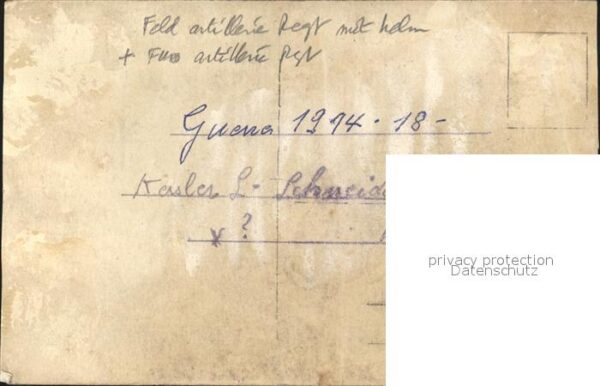 Feld artillerie Regt mit helm
+ Fuss artillerie Rgt
Guerra 1914 - 18 -
Kasler L - Schneid
x ?
privacy protection
Datenschutz